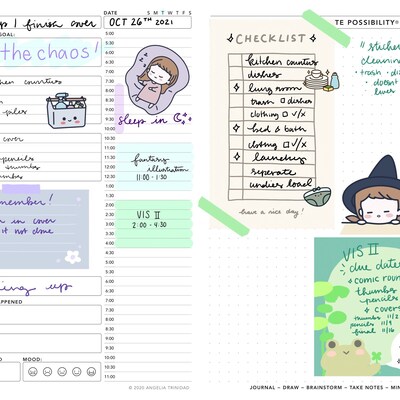 up I finish over
GOAL:
the chaos!
kitchen counters
piles
cover
pencils
thumbs
numbs
member!
in cover
it not done
ing up
HAPPENED
MOOD:
DATE
S M T W T F S
OCT 26TH 2021
5:00
5:30
6:00
6:30
7:00
7:30
8:00
8:30
9:00
sleep in
fantasy
illustration
11:00 - 1:30
VIS II
2:00 - 4:30
3:00
3:30
4:00
4:30
5:00
5:30
6:00
6:30
7:00
7:30
8:00
8:30
9:00
9:30
10:00
10:30
11:00
© 2020 ANGELIA TRINIDAD
TE POSSIBILITY®
CHECKLIST
kitchen counters
dishes
living room
trash dishes
clothing v/x
bed & bath
clothing v/x
laundry
seperate
undies load
have a nice day!
"sticker
cleaning
trash · dis
doesnt
lives
VIS II
due dates
comic roun
thumbs
pencils
covers
thumbs 11/2
pencils 11/9
final 11/16
JOURNAL – DRAW – BRAINSTORM – TAKE NOTES – MIN